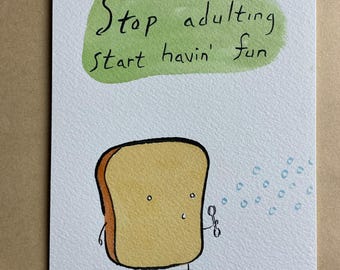 Stop adulting
start havin' fun